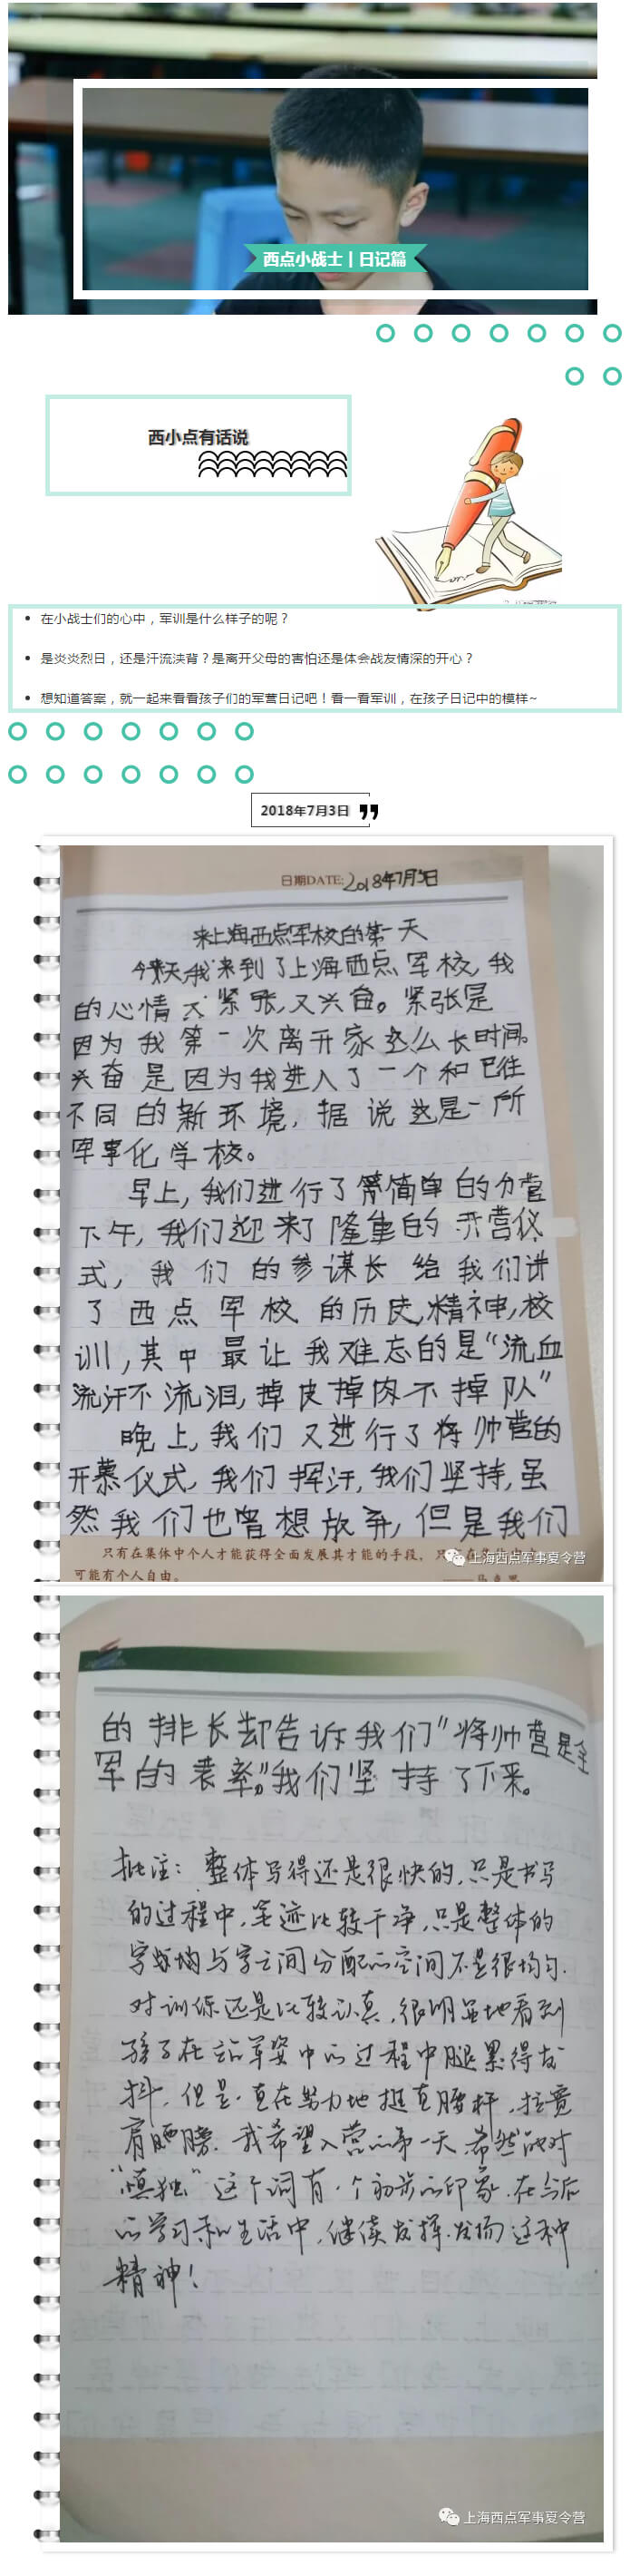 西点小战士丨日记篇
西小点有话说
在小战士们的心中，军训是什么样子的呢？
是炎炎烈日，还是汗流浃背？是离开父母的害怕还是体会战友情深的开心？
想知道答案，就一起来看看孩子们的军营日记吧！看一看军训，在孩子日记中的模样~
2018年7月3日
日期DATE:2018年7月3日
来上海西点军校的第一天
今天,我来到了上海西点军校,我
的心情又紧张,又兴奋。紧张是
因为我第一次离开家这么长时间。
兴奋是因为我进入了一个和已往
不同的新环境,据说这是一所
军事化学校。
早上,我们进行了简单的分营
下午,我们迎来了隆重的开营仪
式,我们的参谋长给我们讲
了西点军校的历史,精神,校
训,其中最让我难忘的是“流血
流汗不流泪,掉皮掉肉不掉队”
晚上,我们又进行了将帅营的
开幕仪式,我们挥汗,我们坚持,虽
然我们也曾想放弃,但是我们
只有在集体中个人才能获得全面发展其才能的手段，只
可能有个人自由。
上海西点军事夏令营
的排长却告诉我们“将帅营是全
军的表率。”我们坚持了下来。
批注：整体写得还是很快的,只是书写
的过程中,笔迹比较干净,只是整体的
字与字之间分配的空间不是很均匀.
对训练还是比较认真,很明显地看到
孩子在站军姿中的过程中腿累得发
抖,但是一直在努力地挺直腰杆,拉宽
肩膀.我希望入营的第一天,希然能对
“慎独”这个词有一个初步的印象.在今后
的学习和生活中,继续发挥.发扬这种
精神！
上海西点军事夏令营